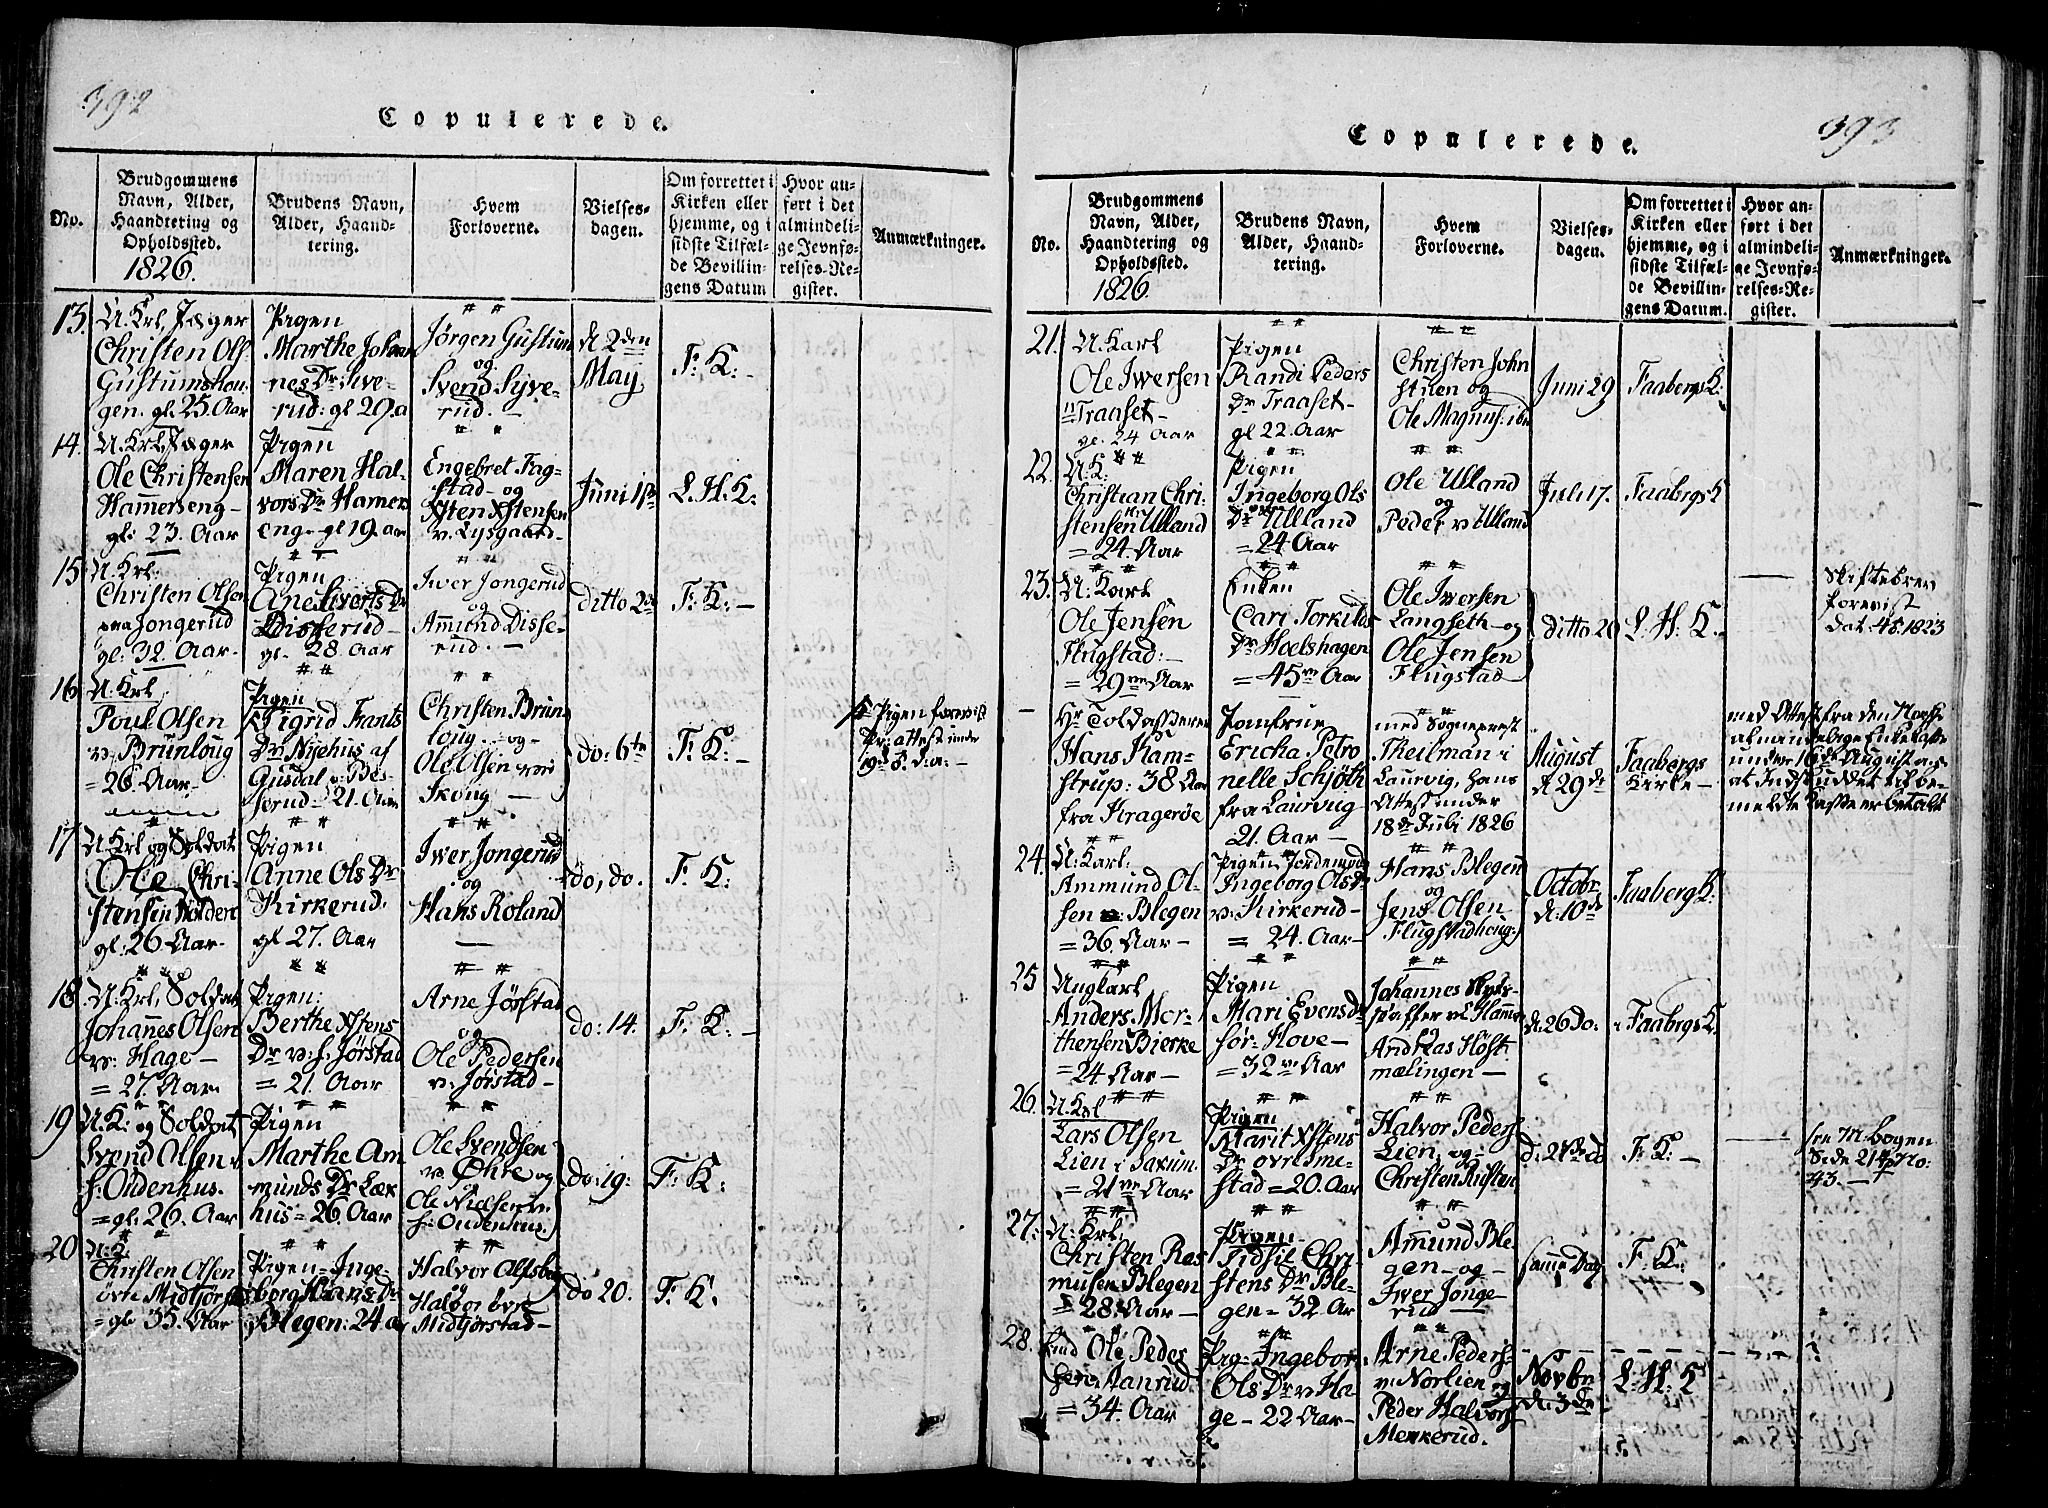 392
Copulerede.
No.
Brudgommens
Navn, Alder,
Haandtering og
Opholdssted.
1826.
Brudens Navn,
Alder, Haand-
tering.
Hvem
Forloverne.
Vielses-
dagen.
Om forrettet i
Kirken eller
hjemme, og i
sidste Tilfæl-
de Bevillin-
gens Datum
Hvor an-
ført i det
almindeli-
ge Jevnfø-
relses-Re-
gister.
Anmærkninger.
13.
U. Krl, Jæger
Christen Ols.
Gustumshou-
gen. gl. 25. Aar
Pigen
Marthe Johan
nes Dr. Sive-
rud: gl 29. a
Jørgen Gustum
og
Svend Syve-
rud. –
d 2den
May
F. K: –
14.
U. Krl, Jæger
Ole Christensen
Hamerseng –
gl. 23. Aar
Pigen
Maren Hal-
vors Dr Hamers
eng – gl 19. aar
Engebret Fag-
stad – og
Xsten Xstensen
v. Lysgaard –
Juni 1ste
L. H. K:
15.
U. Krl.
Christen Olsen
paa Jongerud
gl: 32. Aar.
Pigen
Ane Siverts Dr
Disserud –
gl. 28 Aar
Iwer Jongerud
og
Amund Disse-
rud. –
ditto 2den
F. K: –
16.
U. Krl
Poul Olsen
v. Brunloug
= 26. Aar –
Pigen
Sigrid Frants
Dr. Nyehus af
Gusdal v. Bes-
serud – 21. Aar
Christen Brun
loug – og –
Ole Olsen
Skoug –
do: 6te
F. K: –
Pigen forevist
Pr: attest under
17.
U. Krl og Soldat
Ole Chri-
stensen Nordere
gl: 26 Aar –
Pigen
Anne Ols Dr
Kirkerud.
gl 27. Aar
Iwer Jongerud
og
Hans Roland
do, do.
F. K:
18.
U. Krl. Soldat
Johanes Olsen
v: Hage –
= 27. Aar
Pigen:
Berthe Xstens
Dr v: s. Jørstad
= 21. Aar
Arne Jørstad
og
Ole Pedersen
v. Jørstad –
do: 14.
F. K: –
19
U. K: og Soldat
Svend Olsen v
s: Oudenhus.
= gl: 26. Aar
Pigen
Marthe Am
munds Dr Lax
hus = 26. Aar
Ole Svendsen
v. Øhre og
Ole Nielsen v.
s: Oudenhus.
do: 19:
F. K:
20
U. K.
Christen Olsen
øvre Midtjørs
= gl 35. Aar
Pigen = Inge-
borg Hans Dr
Blegen: 24. a
Halvor Alfsb
og
Halvor øvre
Midtjørstad –
do 20.
F. K.
393
Copulerede.
No.
Brudgommens
Navn, Alder,
Haandtering og
Opholdssted.
1826.
Brudens Navn,
Alder, Haand-
tering.
Hvem
Forloverne.
Vielses-
dagen.
Om forrettet i
Kirken eller
hjemme, og i
sidste Tilfæl-
de Bevillin-
gens Datum.
Hvor an-
ført i det
almindeli-
ge Jevnfø-
relses-Re-
gister.
Anmærkninger.
21.
U. Karl
Ole Iwersen
Traaset –
gl. 24 Aar
Pigen
Randi Peders
Dr Traaset –
gl 22. Aar
Christen John
stuen og
Ole Magnus:
Juni 29
Faabergs K:
22.
U. K.
Christian Chri-
stensen Ulland
= 24. Aar
Pigen
Ingeborg Ols
Dr Ulland
= 24 Aar
Ole Ulland
og
Peder v. Ulland
Juli 17.
Faabergs K
23.
U. Karl
Ole Jensen
Flugstad: –
= 29 Aar
Enken
Cari Torkilds
Dr Hoelshagen
= 45 Aar
Ole Iwersen
Langseth – og
Ole Jensen
Flugstad
ditto 20
L. H. K. –
Skiftebrev
forevist
dat. 1823
Hr Toldasserer
Hans Kam-
strup: 38 Aar
fra Kragerøe
Jomfrue
Ericha Petro
nelle Schjøth
fra Laurvug
21. Aar –
med Sogneprest
Theilman i
Laurvig, hans
Attest under
18de Juli 1826
August
d 29de
Faabergs
Kirke –
med Attest fra den Norske
almindelige Enkekasse
under 16de August
at Indskuddet til be-
meldte Kasse er betalt
24.
U. Karl:
Ammund Ol-
sen Blegen
= 36. Aar –
Pigen, Jordemod
Ingeborg Ols Dr
v: Kirkerud –
= 24. Aar –
Hans Blegen
og
Jens Olsen
Flugstadhoug.
Octobr
d: 10de
Faaberg K:
25
Ungkarl
Anders Mor-
thensen Bierke
= 24 Aar –
Pigen
Mari Evens Dr
sør. Hove –
= 32 Aar
Johannes Skyds-
skaffer v Hamm
og
Andreas Høst
mælingen –
d: 26 Do:
Faabergs K.
26.
U. Krl
Lars Olsen
Lien i Saxum.
= 21 Aar
Pigen
Marit Xstens
Dr øvre Sme-
stad = 20. Aar
Halvor Peders
Lien – og –
Christen Rusten
d: 28de do
F. K: –
see M. bogen
Side 214 No:
43. –
27.
U. Krl.
Christen Ras
musen Blegen
= 28. Aar –
Pigen
Tidsil Chri-
stens Dr Ble-
gen = 32. Ar
Amund Ble-
gen – og –
Iwer Jonge
rud –
samme Dag
F. K: –
28.
Ole Peder
sen Aanrud
= 34. Aar
Pig: Ingebor
Ols Dr v. Ha
ge – 22 Aar –
Arne Peders
v: Norlien og
Peder Halvors
Menkerud.
Novbr
d: 3de
L: H: K